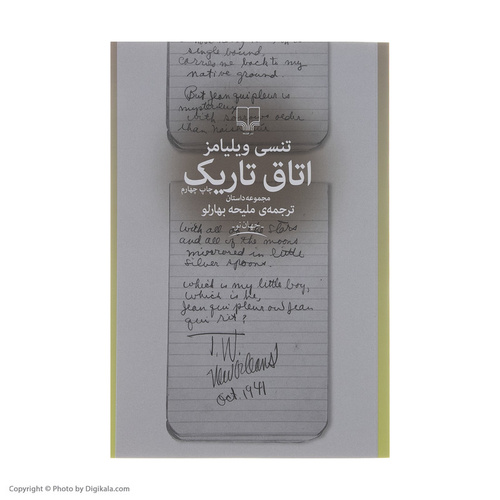 single bound,
carries me back to my
native ground.
But Jean qui pleur is
mysterious
with sorrows older
than
تنسی ویلیامز
اتاق تاریک
چاپ چهارم
مجموعه داستان
ترجمه‌ی ملیحه بهارلو
جهان نو
With all of the stars
and all of the moons
mirrored in little
silver spoons.
which is my little boy,
which is he,
Jean qui pleur ou Jean
qui rit?
T. W.
New Orleans
Oct. 1941
Copyright © Photo by Digikala.com